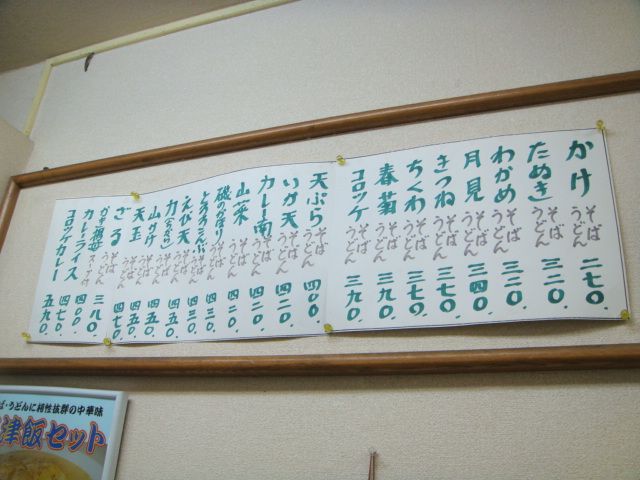 かけ そば うどん 二七〇.
たぬき そば うどん 三二〇.
わかめ そば うどん 三二〇.
月見 そば うどん 三四〇.
きつね そば うどん 三七〇.
ちくわ そば うどん 三七〇.
春菊 そば うどん 三九〇.
コロッケ そば うどん 三九〇.
天ぷら そば うどん 四〇〇.
いか天 そば うどん 四二〇.
カレー南 そば うどん 四二〇.
山菜 そば うどん 四二〇.
磯のかほり そば うどん 四三〇.
とろろこんぶ そば うどん 四三〇.
えび天 そば うどん 四五〇.
力(もち入り) そば うどん 四五〇.
山かけ そば うどん 四五〇.
天玉 そば うどん 四五〇.
ざる そば うどん 四七〇.
スープ付 三八〇.
カレーライス 四七〇.
コロッケカレー 五九〇.
ば・うどんに相性抜群の中華味
津飯セット